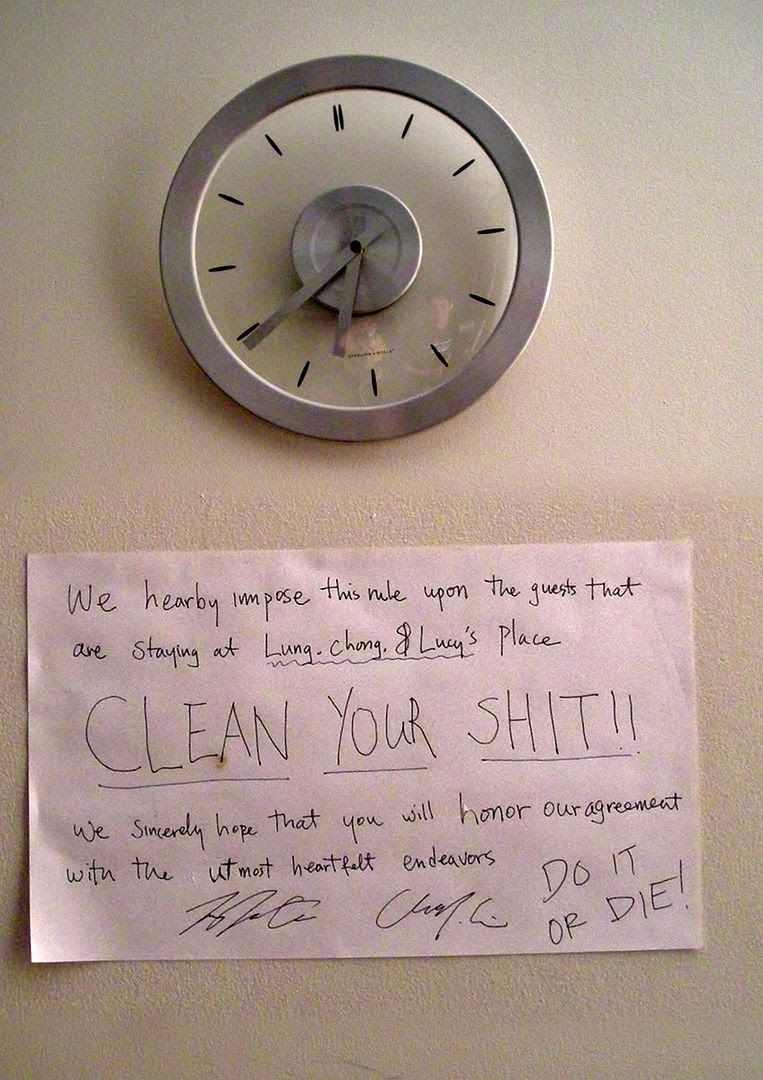 We hearby impose this rule upon the guests that
are staying at Lung. Chong. & Lucy's place
CLEAN YOUR SHIT!!
We sincerely hope that you will honor our agreement
with the utmost heartfelt endeavors
DO IT
OR DIE!